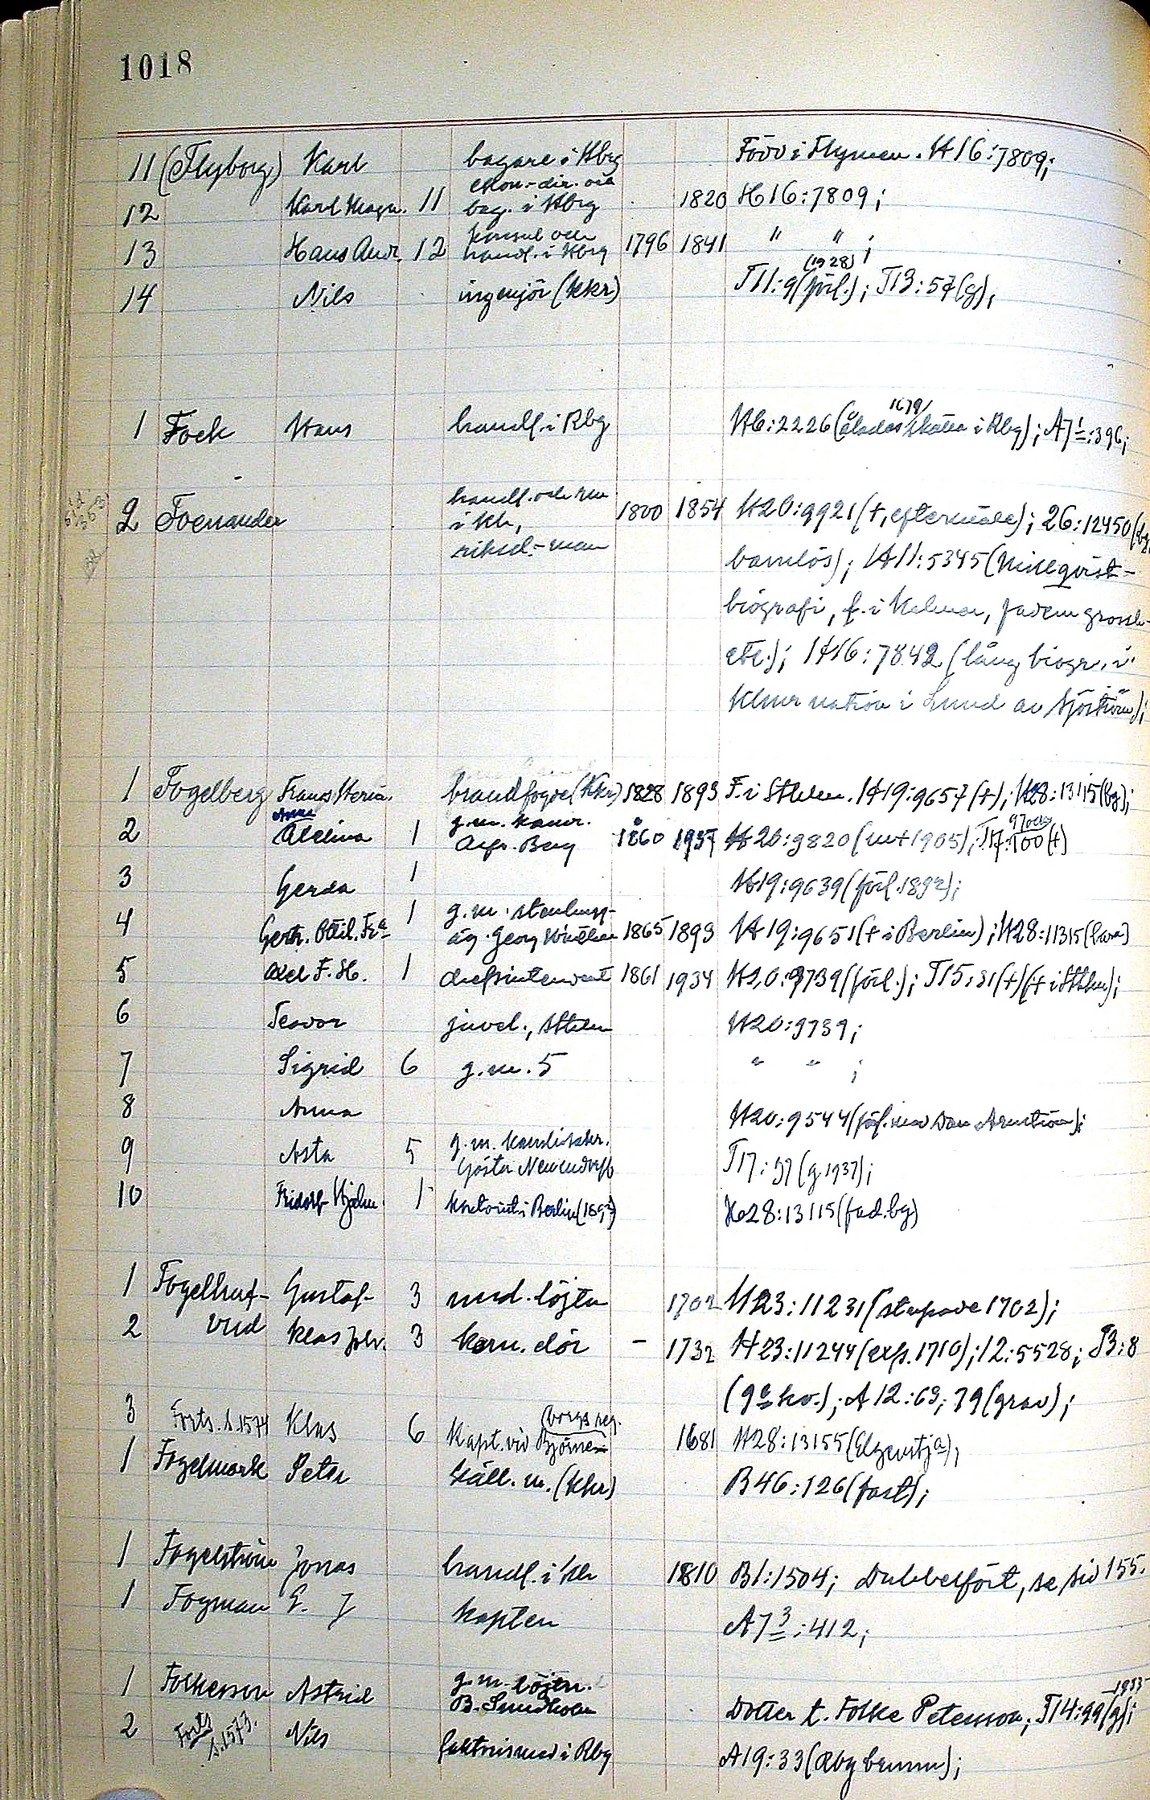 1018
11 (Flyborg) Karl bagare i Kbrg Född i Flymen. H16:7809;
12 Karl Magn. 11 ekon.-dir. och bag. i Kbrg 1820 H16:7809;
13 Hans Andr. 12 konsul och handl. i Kbrg 1796 1841 " " ;
14 Nils ingenjör (Kkr) T11:9 (förl.) (1928); T13:57 (g);
1 Fock Hans handl. i Rbg H6:2226 (1679 i Rbg); A7 1:396;
2 Foenander handl. och 1800 1854 H20:9921 (†, eftermäle); 26:12450
i Kkr, barnlös); H11:5345 (
riksd.-man biografi, f. i Kalmar, fadern
etc.); H16:7842 (lång biogr. i
nation i Lund av Sjöström);
1 Fogelberg Frans Herm. brandfogde (Kkr) 1828 1893 F. i Sthlm. H19:9657 (†); H28:13115 (bg);
2 Anna Alelina 1 g.m. Berg 1860 1937 H20:9820 (1905); T17:100 (†)
3 Gerda 1 H19:9639 (förl. 1892);
4 Gertr. Ottil. Fr:a 1 g.m. Georg 1865 1893 H19:9651 († i Berlin); H28:11315
5 Axel F. H. 1 chefsintendent 1861 1934 H20:9739 (förl.); T15:31 (†) († i Sthlm);
6 Teodor juvel., Sthlm H20:9739;
7 Sigrid 6 g.m. 5 " " ;
8 Anna H20:9544 (förl. med Dan Arnström);
9 Asta 5 g.m.
Gösta Neuendorff T17:57 (g 1937);
10 Fridolf Hjalm. 1 kontorist i Berlin (1893) H28:13115 (fad. bg)
1 Fogelhuf- Gustaf 3 und. löjtn 1702 H23:11231 (stupade 1702);
2 vud Klas Joh. 3 kom. dör - 1732 H23:11244 (exp. 1710); 12:5528; T3:8
(g:a kv.); A12:69; 79 (grav);
3 Forts. s. 1574 Klas 6 Kapt. vid Björne- 1681 H28:13155 (Elgenstj:a);
1 Fogelmark Peter käll. m. (Kkr) B46:126 (fast);
1 Fogelström Jonas handl. i Kkr 1810 B1:1504; Dubbelfört, se sid 155.
1 Fogman E. J kapten A7 3:412;
1 Folkesson Astrid g.m. löjtn.
B. Sundholm Dotter t. Folke Petersson; T14:99 (g) 1933;
2 Forts s. 1573. Nils i Rbg A19:33 (Rbg brunn);